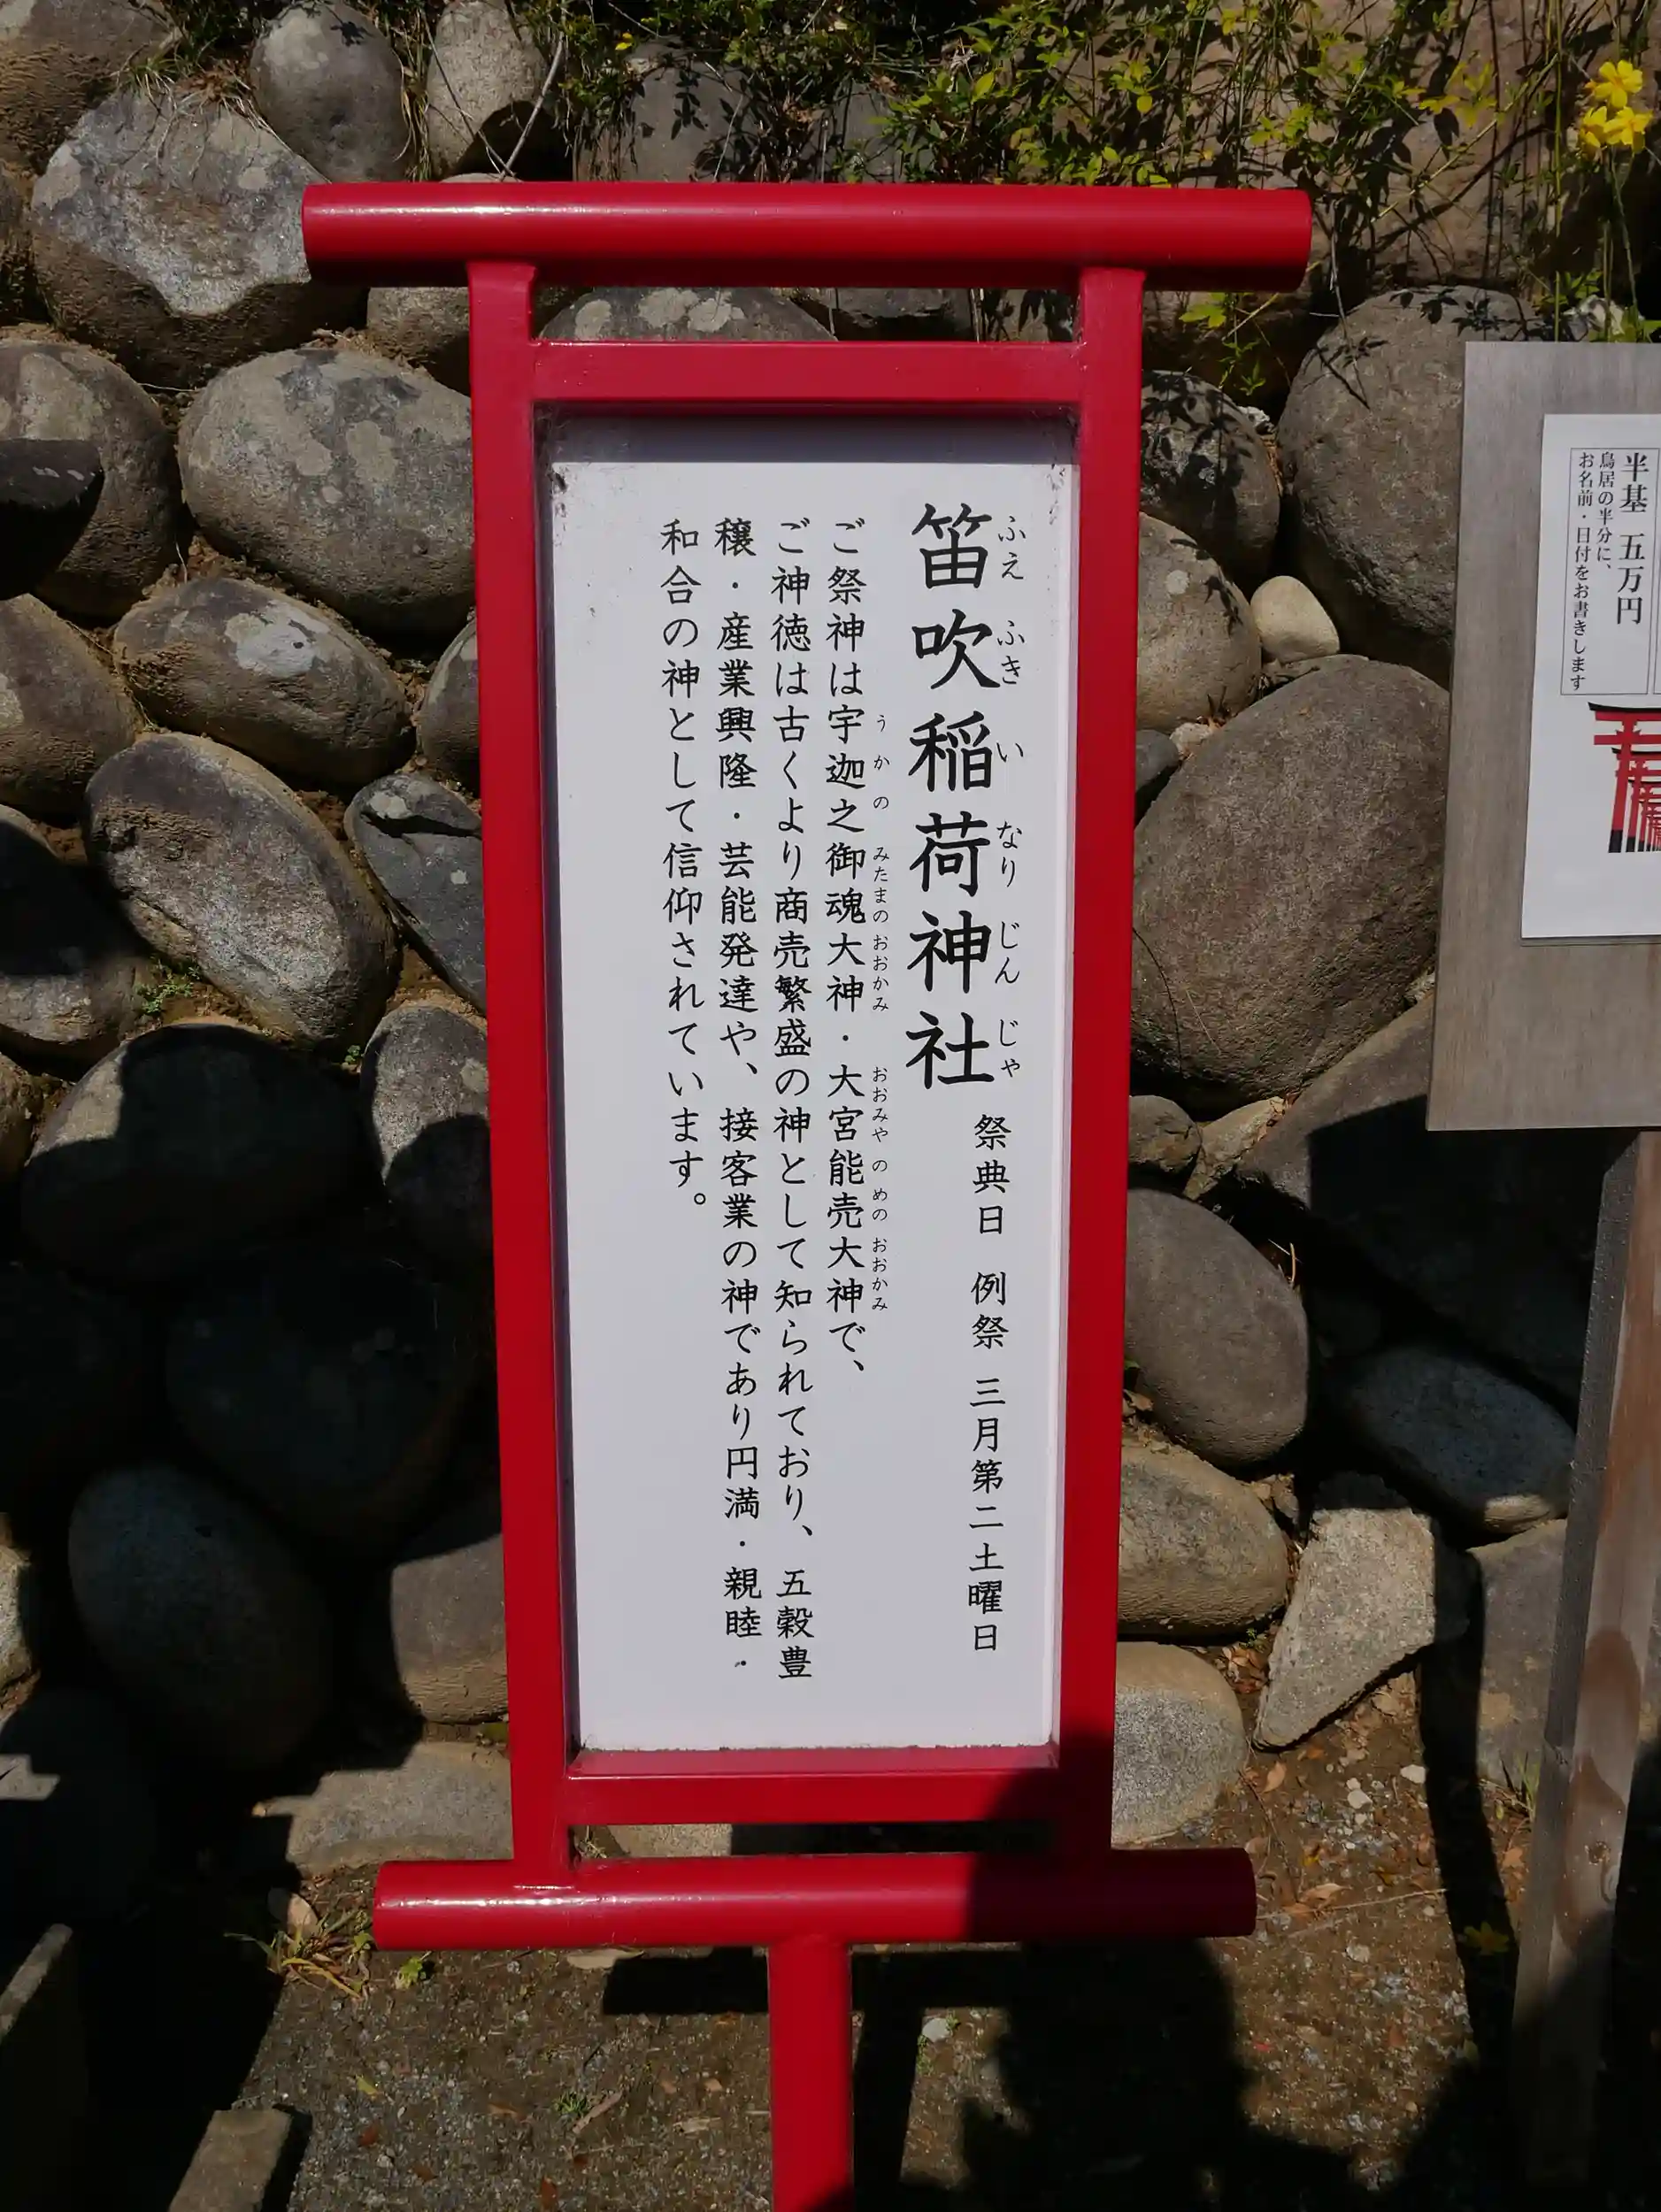 笛吹稲荷神社
ふえ ふき い なり じん じゃ
祭典日 例祭 三月第二土曜日
ご祭神は宇迦之御魂大神・大宮能売大神で、
う か の みたまの おおかみ おおみや の めの おおかみ
ご神徳は古くより商売繁盛の神として知られており、五穀豊
穣・産業興隆・芸能発達や、接客業の神であり円満・親睦・
和合の神として信仰されています。
半基 五万円
鳥居の半分に、
お名前・日付をお書きします